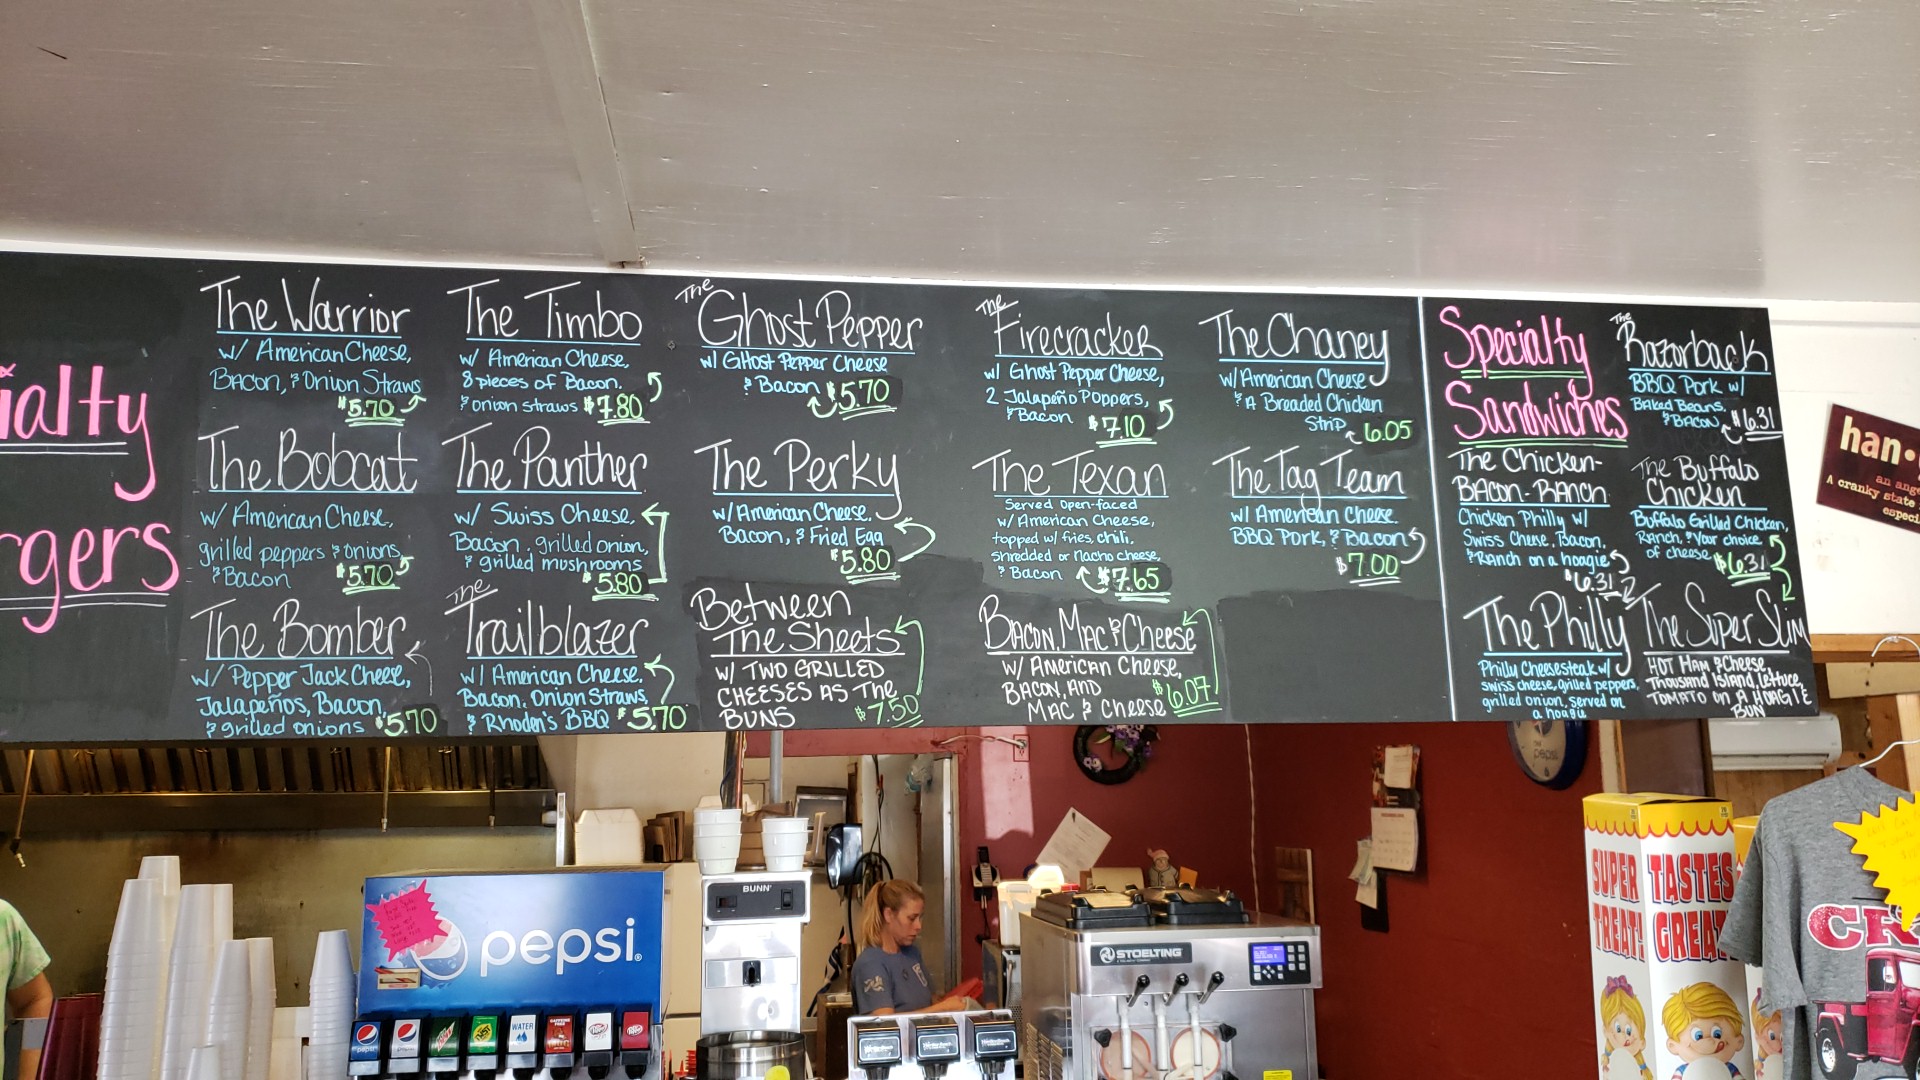 ialty
rgers
The Warrior
w/ American Cheese,
Bacon, & Onion Straws
$5.70
The Bobcat
w/ American Cheese,
grilled peppers & onions,
& Bacon
$5.70
The Bomber
w/ Pepper Jack Cheese,
Jalapeños, Bacon,
& grilled onions $5.70
The Timbo
w/ American Cheese,
8 pieces of Bacon,
& onion straws $7.80
The Panther
w/ Swiss Cheese,
Bacon, grilled onion,
& grilled mushrooms
$5.80
The
Trailblazer
w/ American Cheese,
Bacon, Onion Straws,
& Rhoden's BBQ $5.70
The
Ghost Pepper
w/ Ghost Pepper Cheese
& Bacon $5.70
The Perky
w/ American Cheese,
Bacon, & Fried Egg
$5.80
Between
The Sheets
w/ Two Grilled
Cheeses as the
Buns $7.50
The
Firecracker
w/ Ghost Pepper Cheese,
2 Jalapeño Poppers,
& Bacon $7.10
The Texan
Served open-faced
w/ American Cheese,
topped w/ fries, chili,
shredded or nacho cheese,
& Bacon $7.65
Bacon, Mac & Cheese
w/ American Cheese,
Bacon, and
Mac & Cheese $6.07
The Chaney
w/ American Cheese
& A Breaded Chicken
Strip 6.05
The Tag Team
w/ American Cheese
BBQ Pork, & Bacon
$7.00
Specialty
Sandwiches
The Chicken-
Bacon-Ranch
Chicken Philly w/
Swiss Cheese, Bacon,
& Ranch on a hoagie
$6.31
The Philly
Philly Cheesesteak w/
swiss cheese, grilled peppers,
grilled onion, served on
a hoagie
The
Razorback
BBQ Pork w/
Baked Beans,
& Bacon $6.31
The Buffalo
Chicken
Buffalo Grilled Chicken,
Ranch, & Your choice
of cheese $6.31
The Super Slim
Hot Ham & Cheese,
Thousand Island, lettuce,
Tomato on a Hoagie
Bun
han
an ang
A cranky state
especi
pepsi
pepsi
WATER
BUNN
STOELTING
pepsi
SUPER
TREAT!
TASTES
GREA